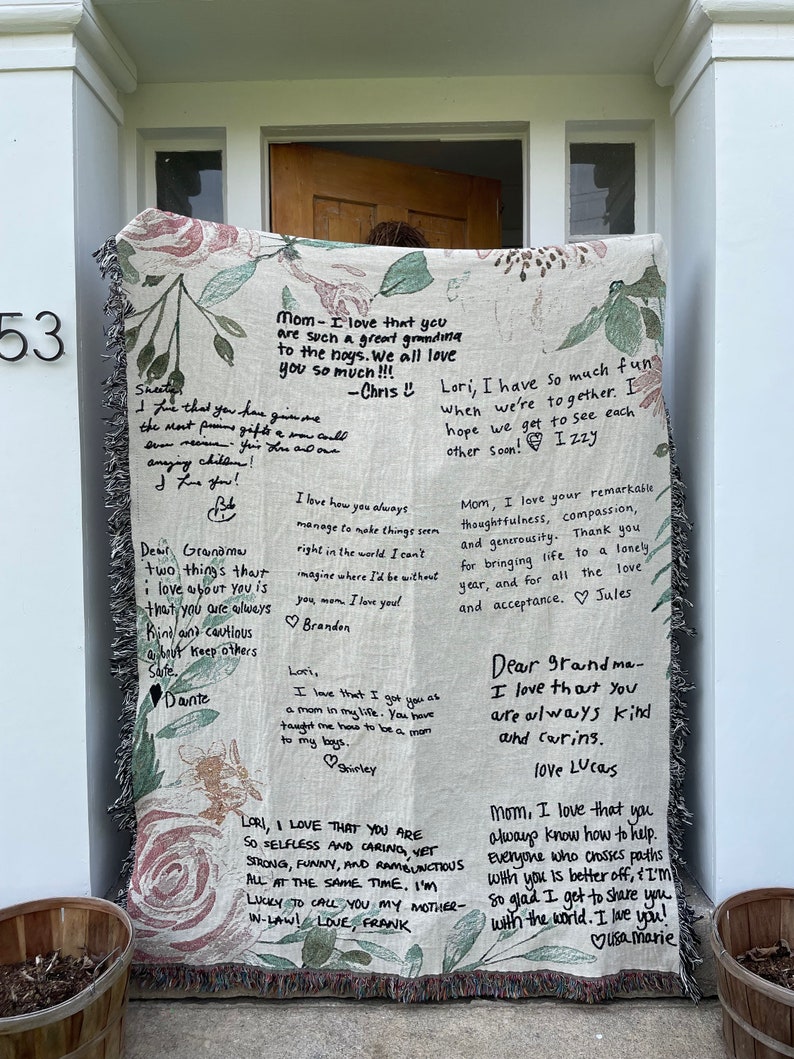 53
Mom- I love that you
are such a great grandma
to the boys. We all love
you so much!!!
-Chris
Lori, I have so much fun
when we're together. I
hope we get to see each
other soon! Izzy
Sweetie,
I love that you have given me
the most precious gifts a man could
ever receive- Your love and our
amazing children!
I Love you!
Bob
I love how you always
manage to make things seem
right in the world. I can't
imagine where I'd be without
you, mom. I love you!
♡ Brandon
Mom, I love your remarkable
thoughtfulness, compassion,
and generousity. Thank you
for bringing life to a lonely
year, and for all the love
and acceptance. ♡ Jules
Dear Grandma
two things that
i love about you is
that you are always
Kind and cautious
about keep others
safe.
♥ Dante
Lori,
I love that I got you as
a mom in my life. You have
taught me how to be a mom
to my boys.
♡ Shirley
Dear grandma-
I love that you
are always kind
and caring.
love Lucas
LORI, I LOVE THAT YOU ARE
SO SELFLESS AND CARING, YET
STRONG, FUNNY, AND RAMBUNCTIOUS
ALL AT THE SAME TIME. I'M
LUCKY TO CALL YOU MY MOTHER-
IN-LAW! LOVE, FRANK
Mom, I love that you
always know how to help.
Everyone who crosses paths
with you is better off, & I'm
so glad I get to share you
with the world. I love you!
♡ Lisa Marie